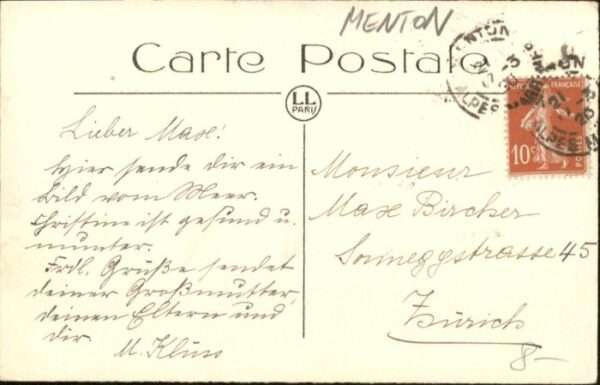 MENTON
Carte Postale
LL
PARIS
Lieber Max!
Hier sende dir ein
Bild vom Meer.
Christine ist gesund u.
munter.
Frdl. Grüße sendet
deiner Großmutter,
deinen Eltern und
dir
M. Klins
Monsieur
Max Bircher
Sonneggstrasse 45
Zürich
8-
10c
MENTON
ALPES